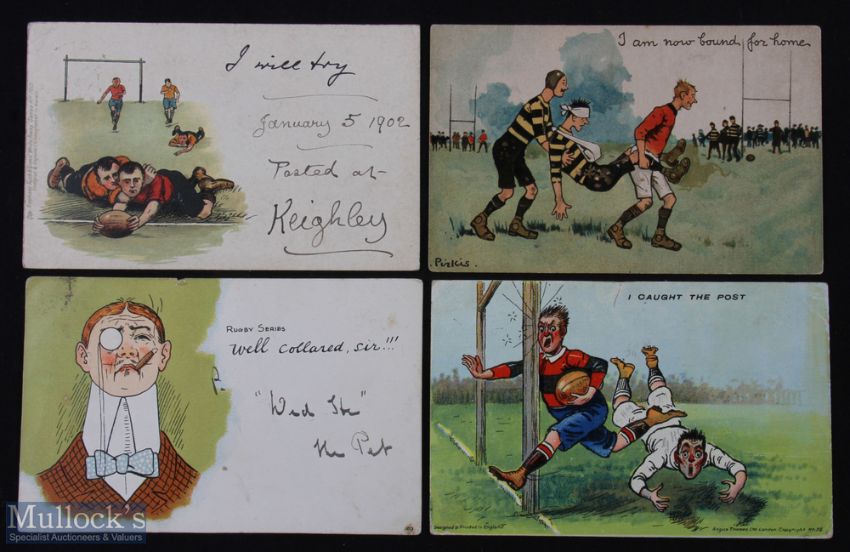 I will try
January 5 1902
Posted at
Keighley
I am now bound for home
Pirkis.
RUGBY SERIES
Well collared, sir!!!
"Wed
the Pet
I CAUGHT THE POST
Designed & Printed in England
Angus Thomas Ltd London Copyright
Mullock's
Specialist Auctioneers & Valuers